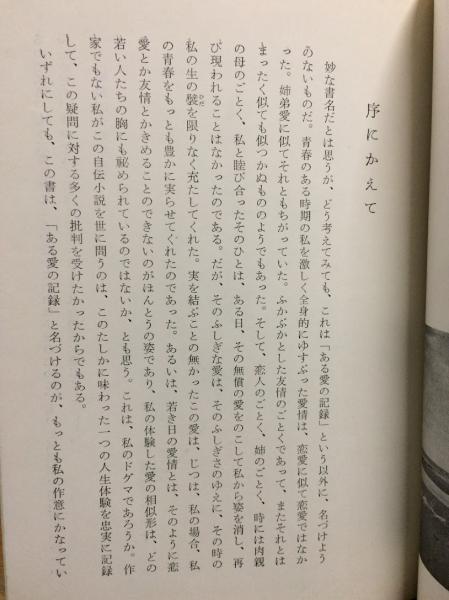 序にかえて
妙な書名だとは思うが、どう考えてみても、これは「ある愛の記録」という以外に、名づけよう
のないものだ。青春のある時期の私を激しく全身的にゆすぶった愛情は、恋愛に似て恋愛ではなか
った。姉弟愛に似てそれともちがっていた。ふかぶかとした友情のごとくであって、またそれとは
まったく似ても似つかぬもののようでもあった。そして、恋人のごとく、姉のごとく、時には肉親
の母のごとく、私と睦び合ったそのひとは、ある日、その無償の愛をのこして私から姿を消し、再
び現われることはなかったのである。だが、そのふしぎな愛は、そのふしぎさのゆえに、その時の
私の生の襞を限りなく充たしてくれた。実を結ぶことの無かったこの愛は、じつは、私の場合、私
の青春をもっとも豊かに実らせてくれたのであった。あるいは、若き日の愛情とは、そのように恋
愛とか友情とかきめることのできないのがほんとうの姿であり、私の体験した愛の相似形は、どの
若い人たちの胸にも秘められているのではないか、とも思う。これは、私のドグマであろうか。作
家でもない私がこの自伝小説を世に問うのは、このたしかに味わった一つの人生体験を忠実に記録
して、この疑問に対する多くの批判を受けたかったからでもある。
いずれにしても、この書は、「ある愛の記録」と名づけるのが、もっとも私の作意にかなってい